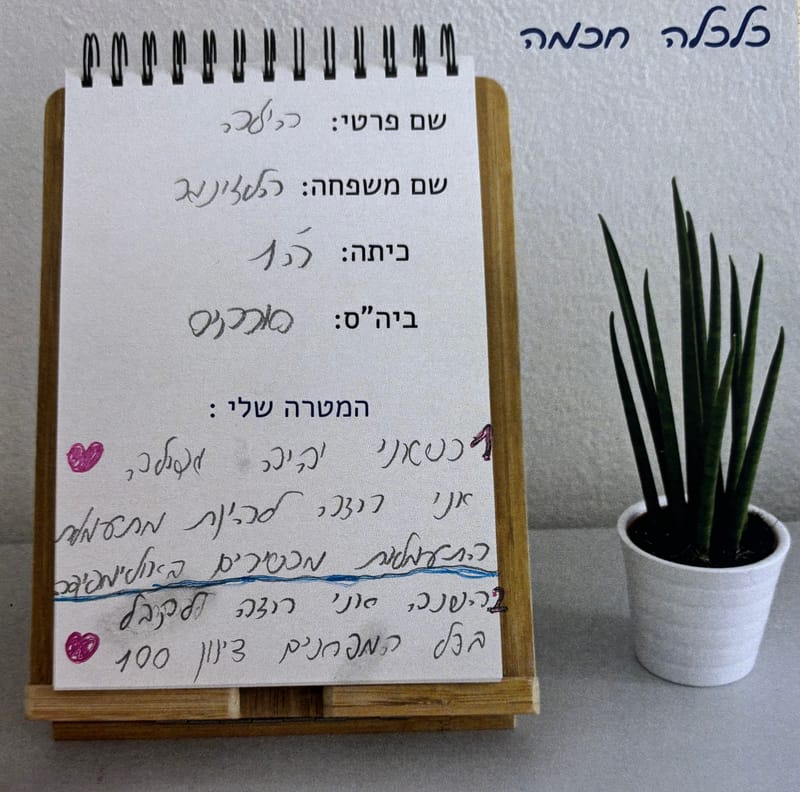 כלכלה חכמה
שם פרטי: הילה
שם משפחה:
כיתה: ה'1
ביה"ס:
המטרה שלי :
1 כשאני יהיה גדולה
אני רוצה להיות מתעמלת
התעמלות מכשירים באולימפידה
2 השנה אני רוצה לקבל
בכל המבחנים ציון 100